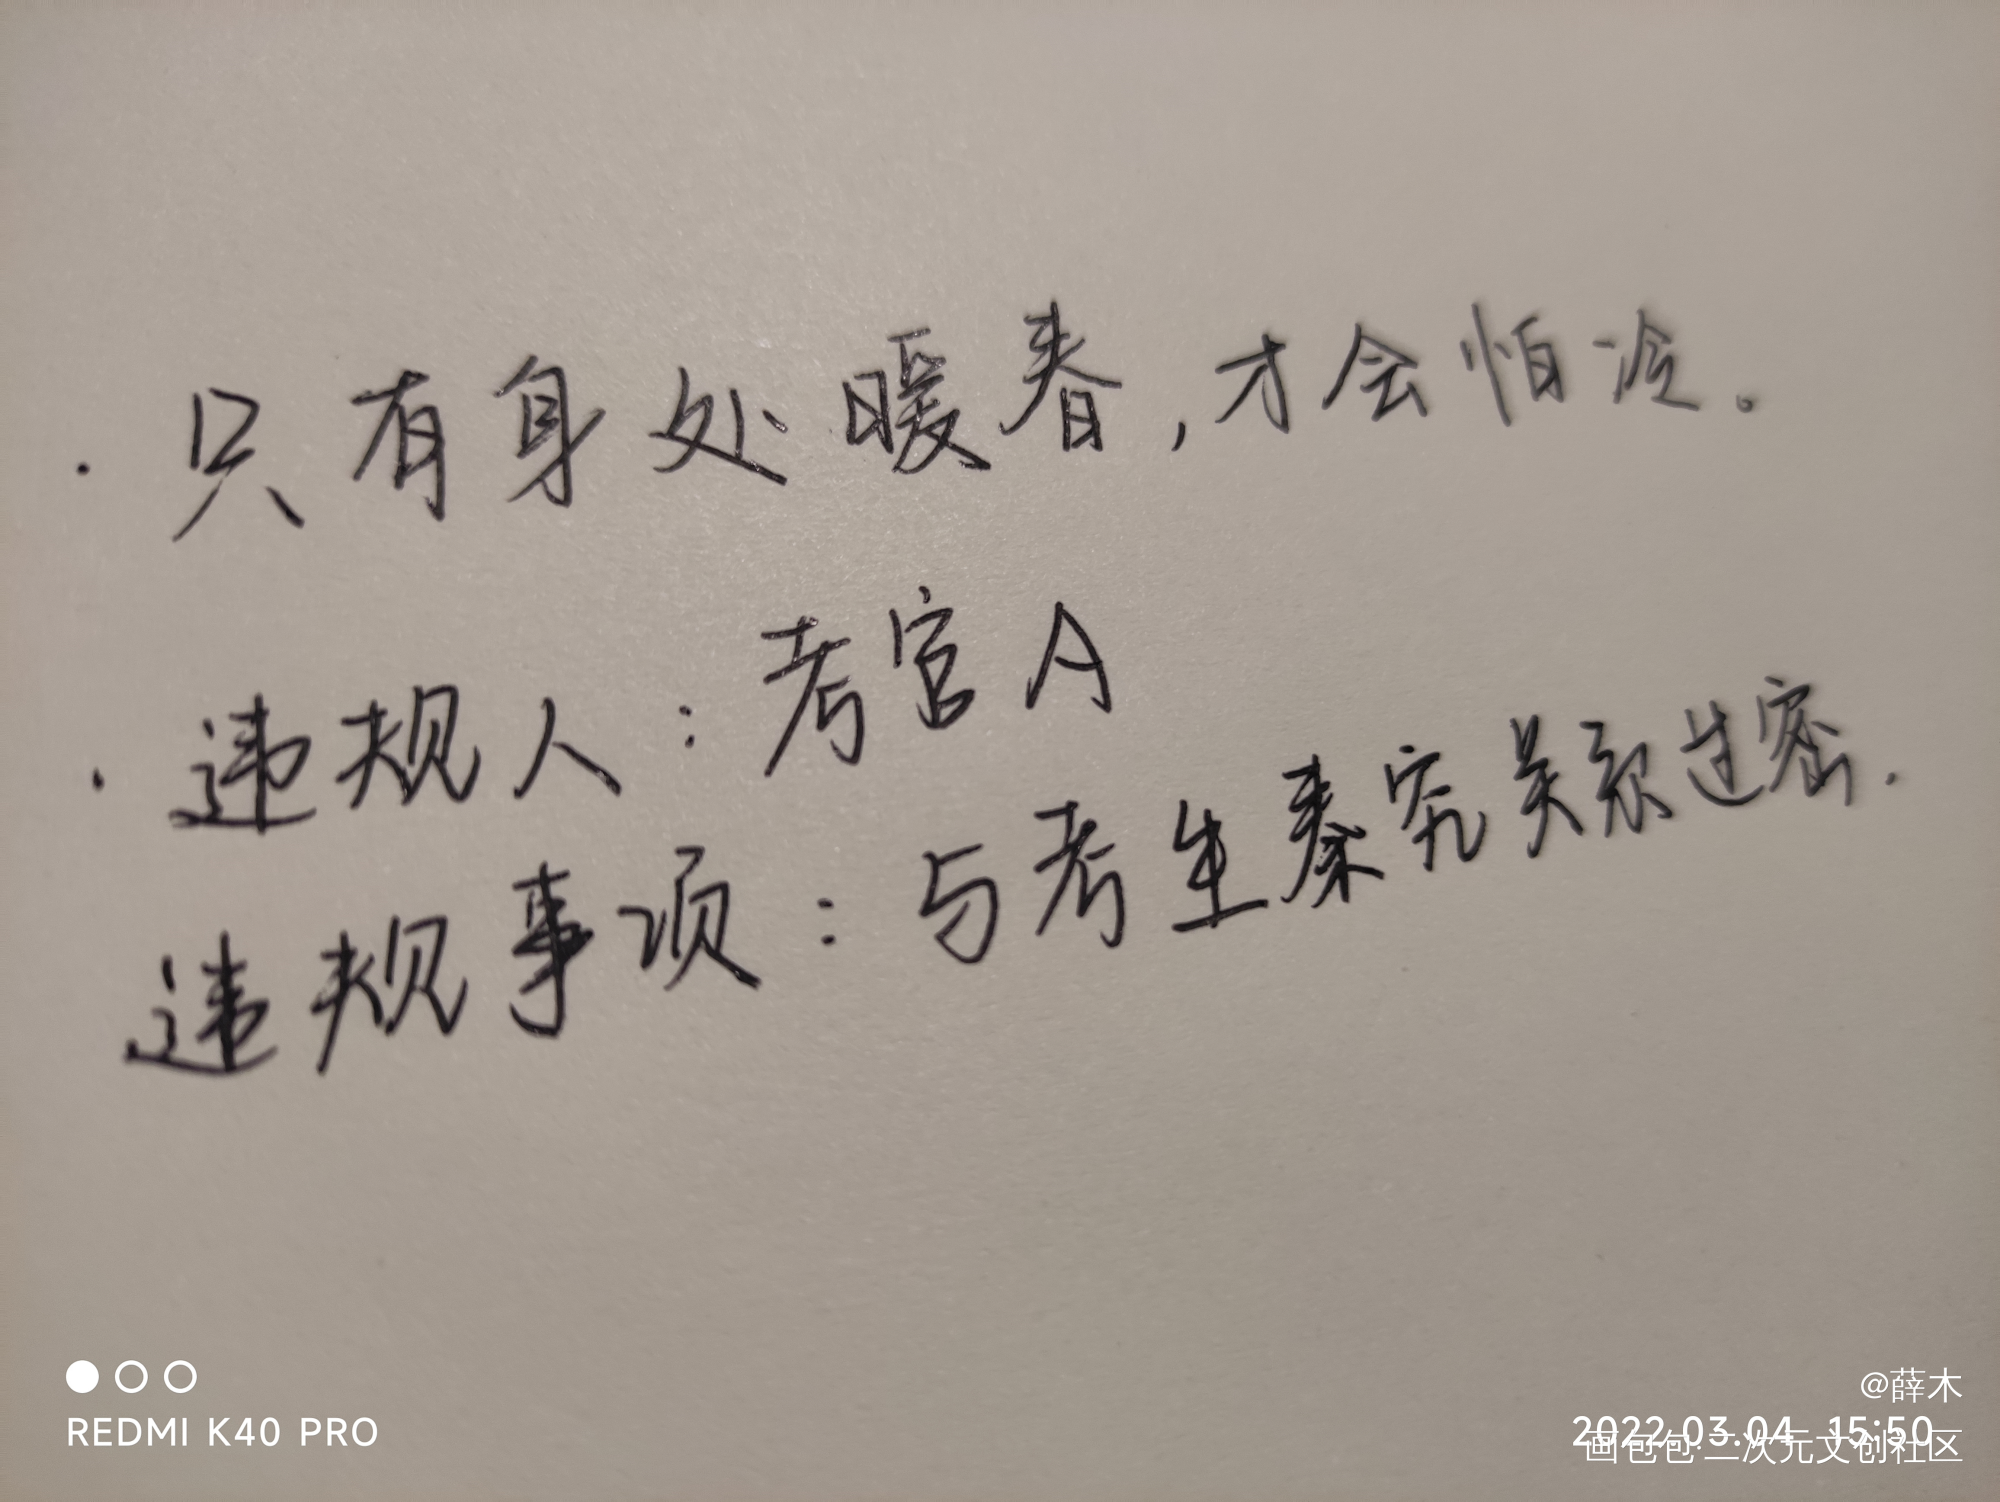 · 只有身处暖春,才会怕冷。
· 违规人:考官A
违规事项:与考生秦究关系过密.
REDMI K40 PRO
@薛木
2022.03.04 15:50
画包包·二次元文创社区